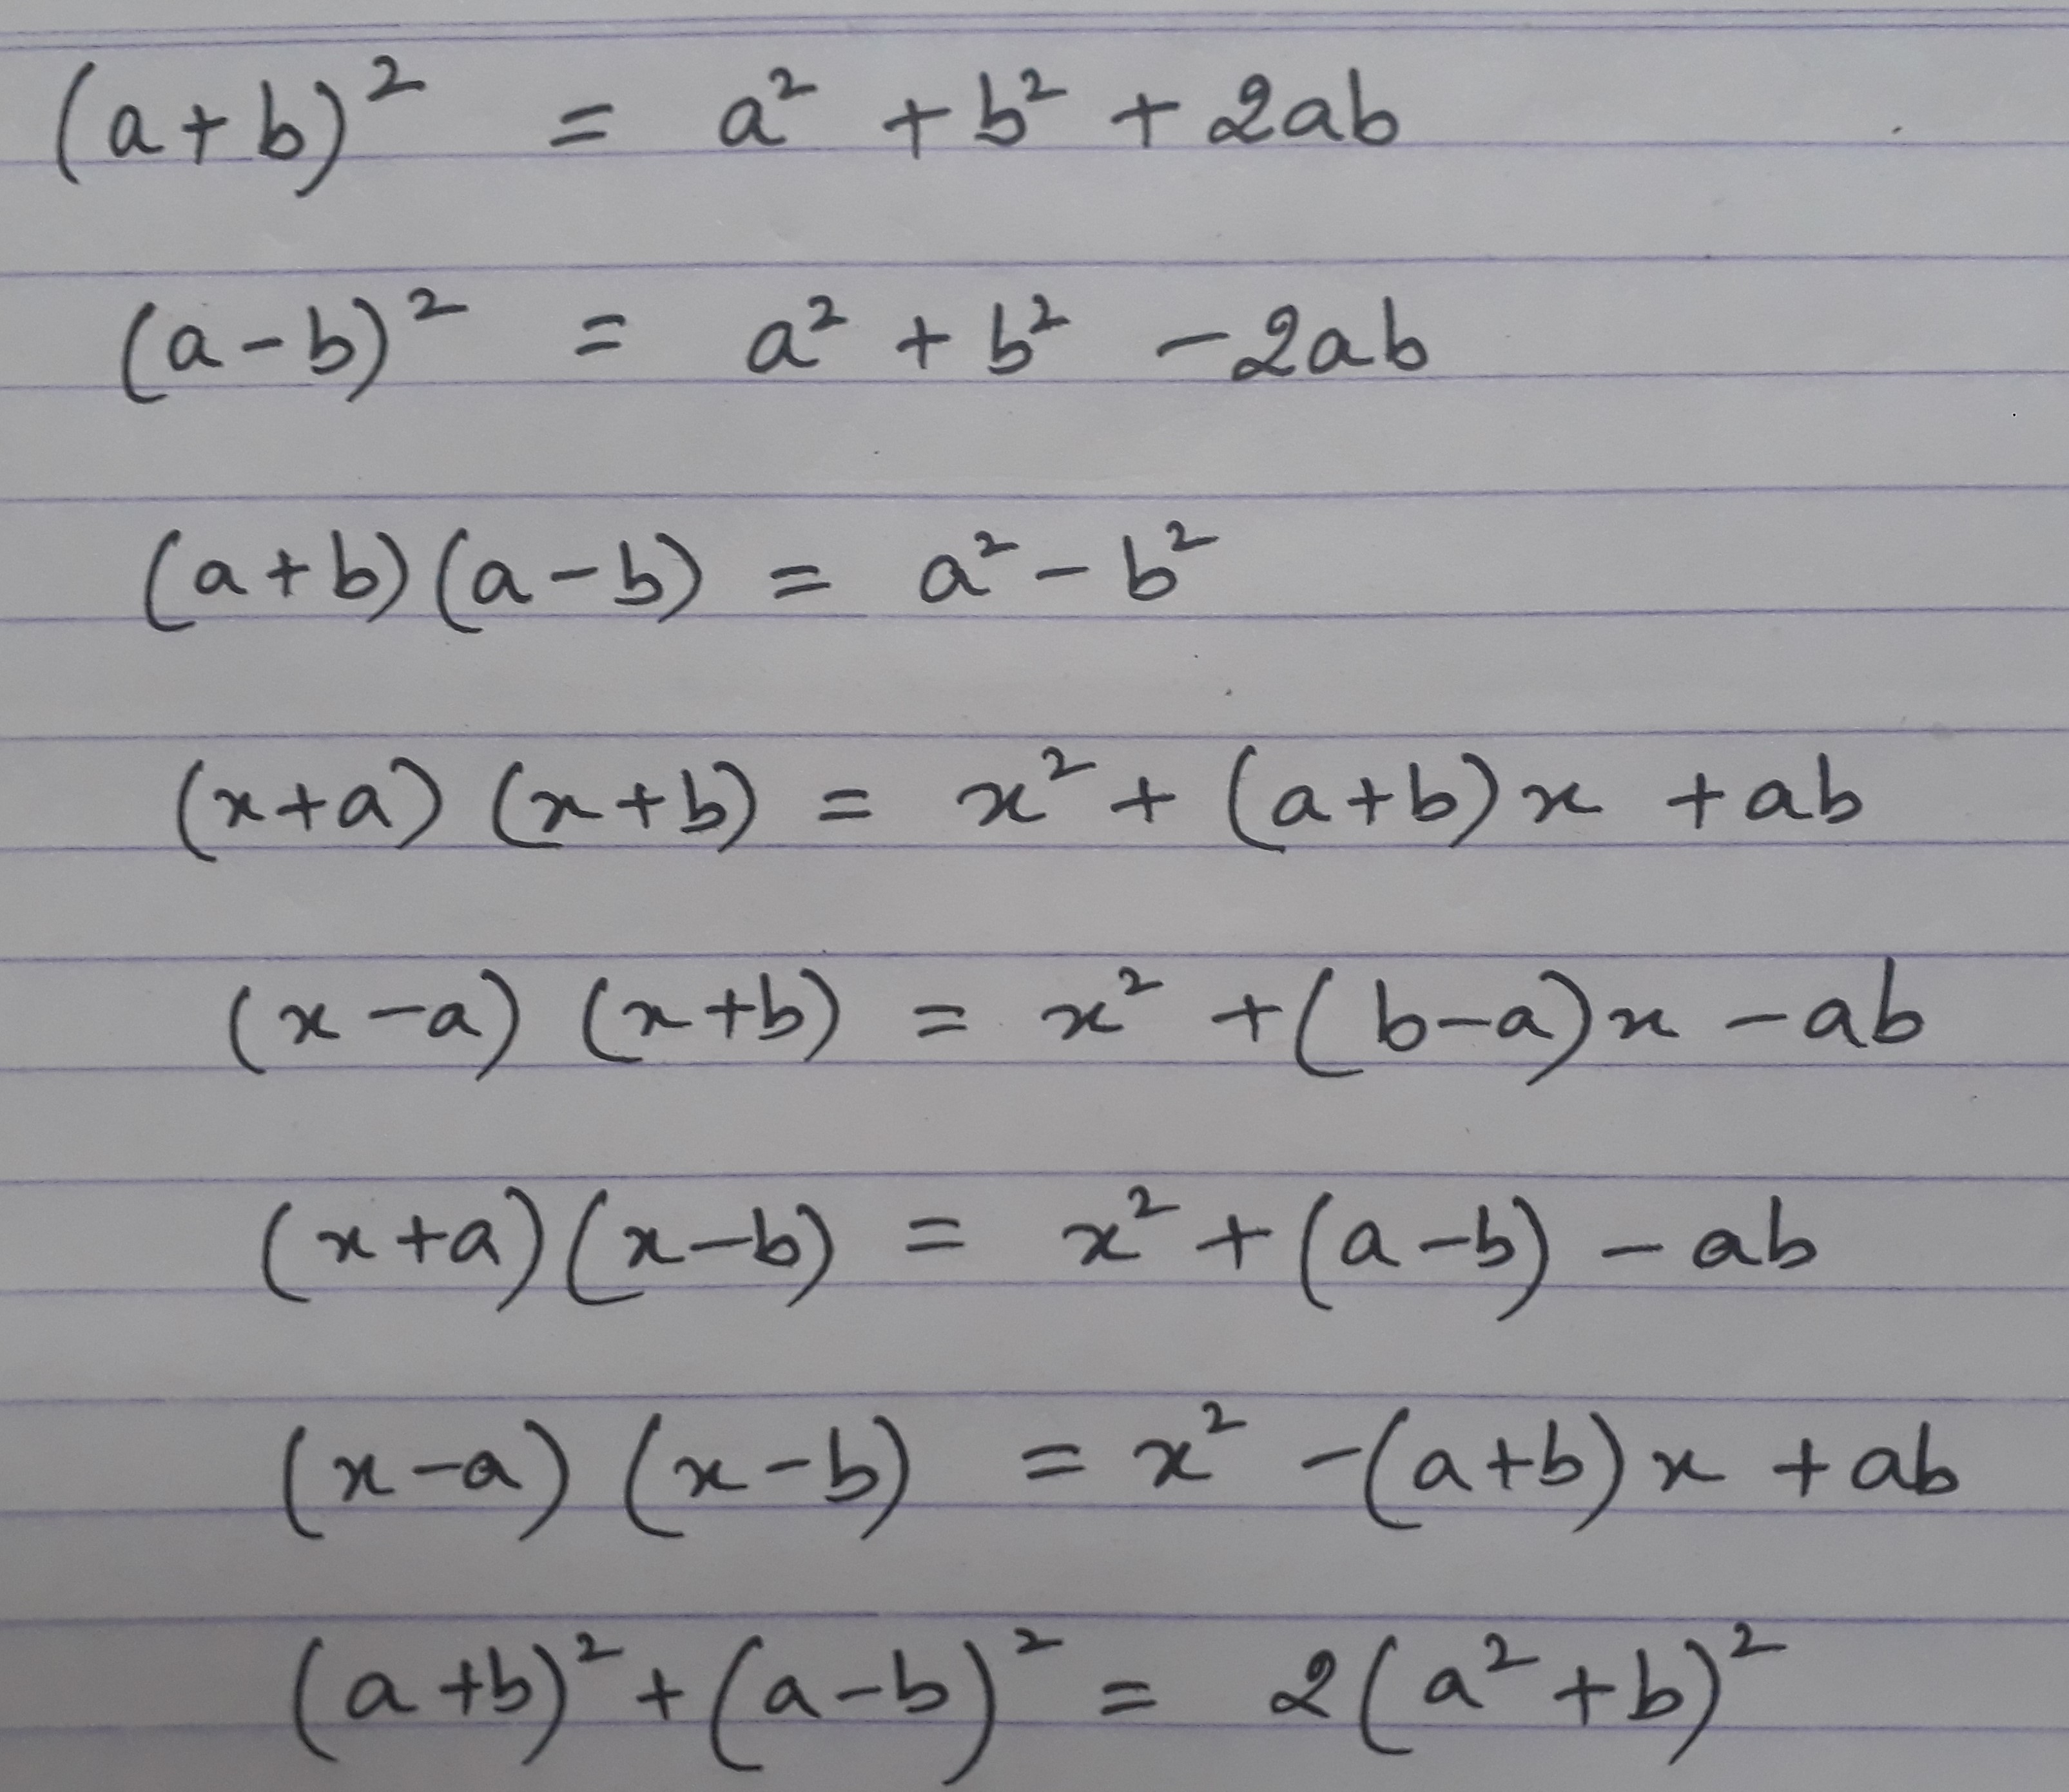 (a+b)² = a² + b² + 2ab
(a-b)² = a² + b² - 2ab
(a+b)(a-b) = a² - b²
(x+a) (x+b) = x² + (a+b)x + ab
(x-a) (x+b) = x² + (b-a)x - ab
(x+a)(x-b) = x² + (a-b) - ab
(x-a) (x-b) = x² - (a+b)x + ab
(a+b)² + (a-b)² = 2(a² + b)²